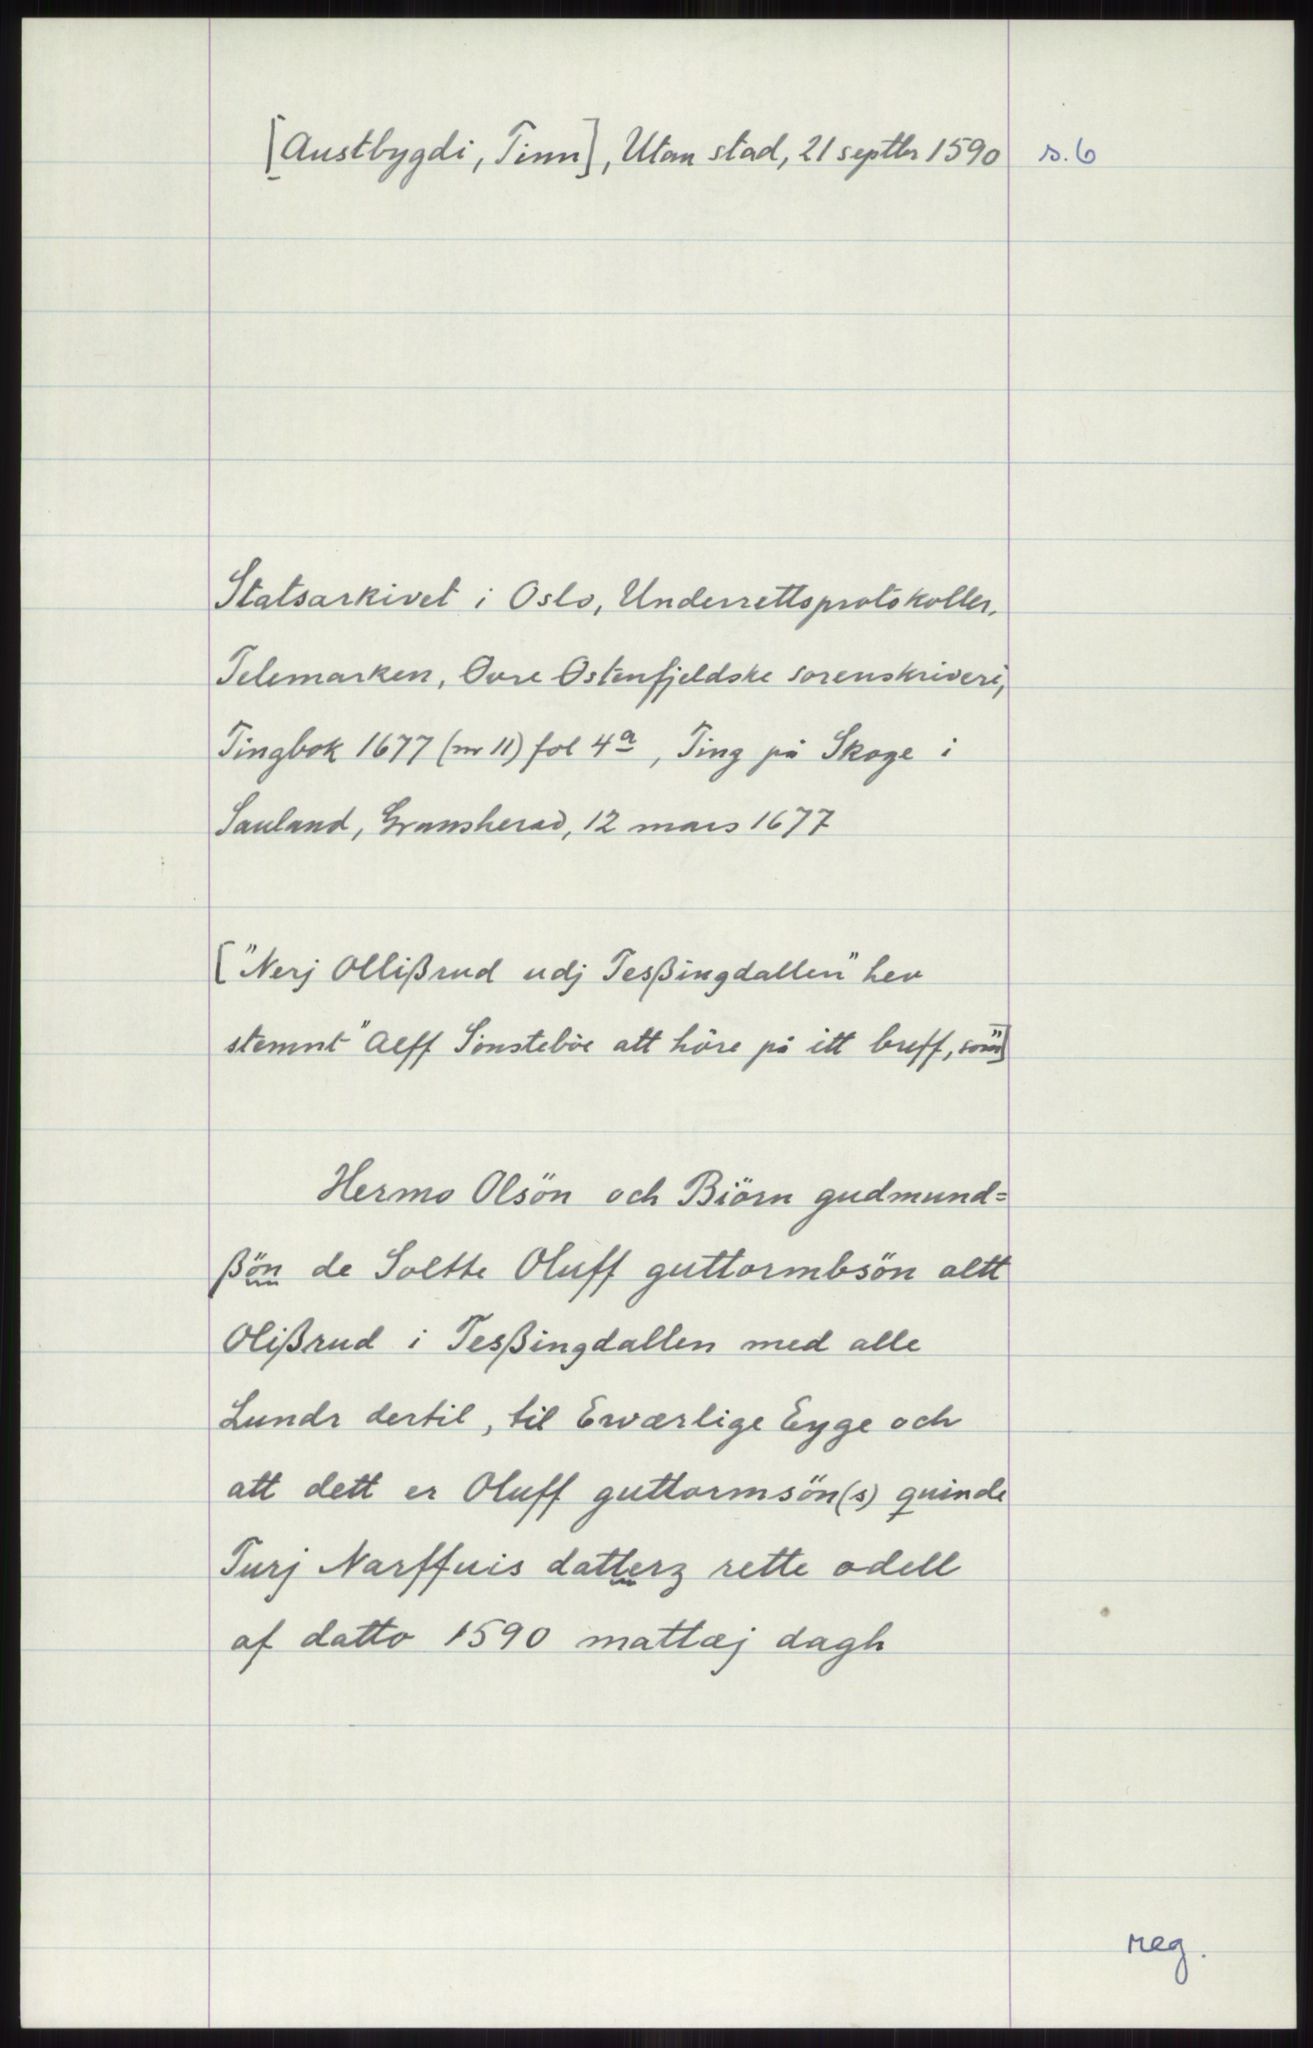 [Austbygdi, Tinn], Utan stad, 21 septbr 1590 s. 6
Statsarkivet i Oslo, Underrettsprotokoller,
Telemarken, Øvre Østenfjeldske sorenskriveri,
Tingbok 1677 (nr 11) fol 4a, Ting på Skoge i
Sauland, Gransherad, 12 mars 1677
["Nerj Ollißrud udj Teßßingdallen" hev
stemnt "Aeff Sønstebøe att höre på itt breff, som"]
Hermo Olsön och Biörn gudmund=
ßön de Soltte Oluff guttormbsön altt
Olißrud i Tesßingdallen med alle
Lundr dertil, til Erværlige Eyge och
att dett er Oluff guttormsön(s) quinde
Turj Narffuis datterz rette odell
af datto 1590 mattæj dagh
reg.